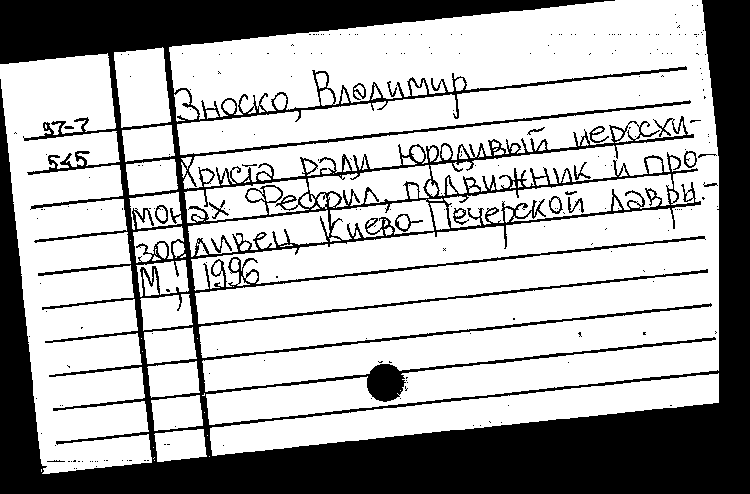 Зноско, Владимир
97-7
545
Христа ради юродивый иеросхи-
монах Феофил, подвижник и про-
зорливец Киево-Печерской лавры.-
М., 1996.